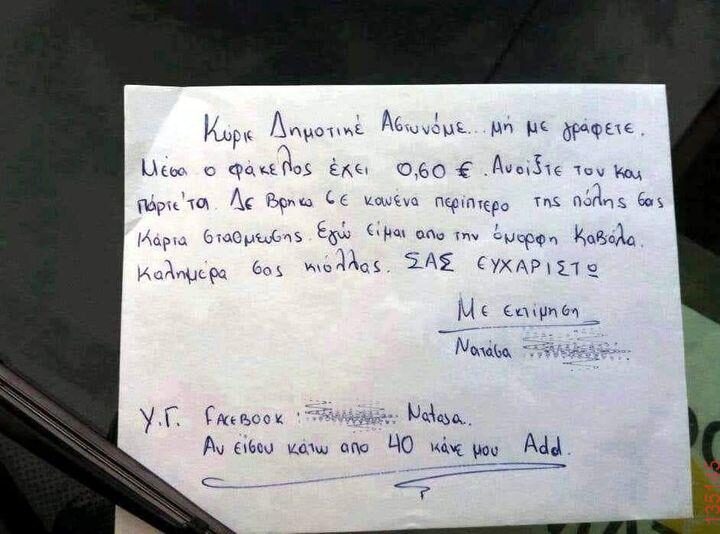 Κύριε Δημοτικέ Αστυνόμε... μή με γράφετε.
Μέσα ο φάκελος έχει 0,60 €. Ανοίξτε τον και
πάρτε'τα. Δε βρηκα σε κανένα περίπτερο της πόλης σας
κάρτα σταθμευσης. Εγώ είμαι απο την όμορφη Καβάλα.
Καλημέρα σας κιόλλας. ΣΑΣ ΕΥΧΑΡΙΣΤΩ
Με εκτίμηση
Νατάσα
Υ.Γ. FACEBOOK: Natasa..
Αν είσου κάτω απο 40 κάνε μου Add.